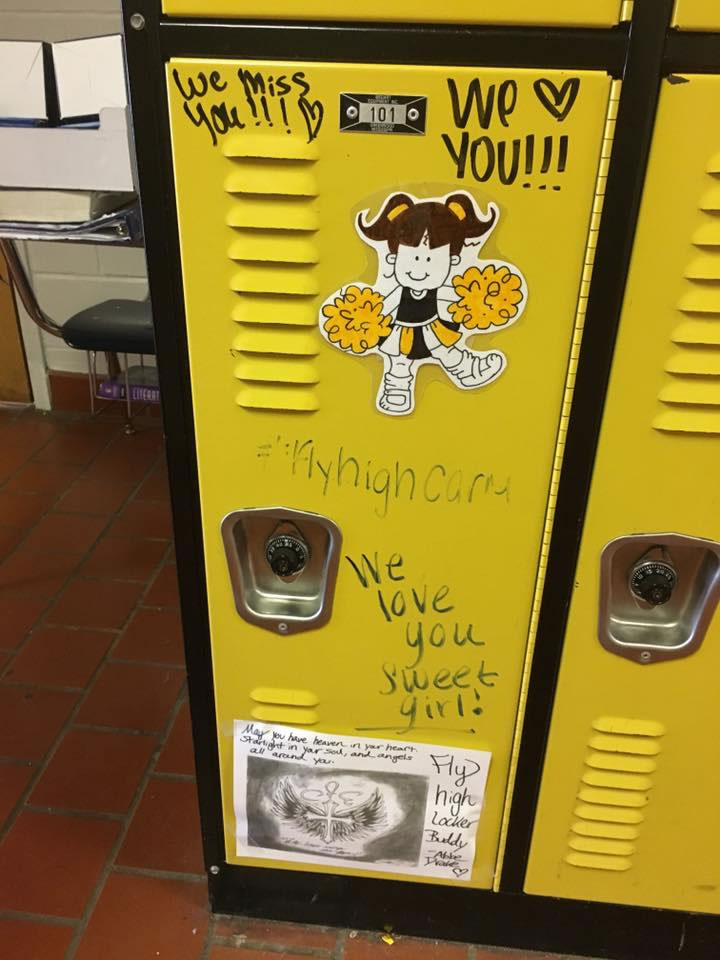 We Miss
You!!!
101
We
YOU!!!
#Flyhigh
We
love
you
sweet
girl!
May you have heaven in your heart,
Starlight in your soul, and angels
all around you.
Fly
high
Locker
Buddy